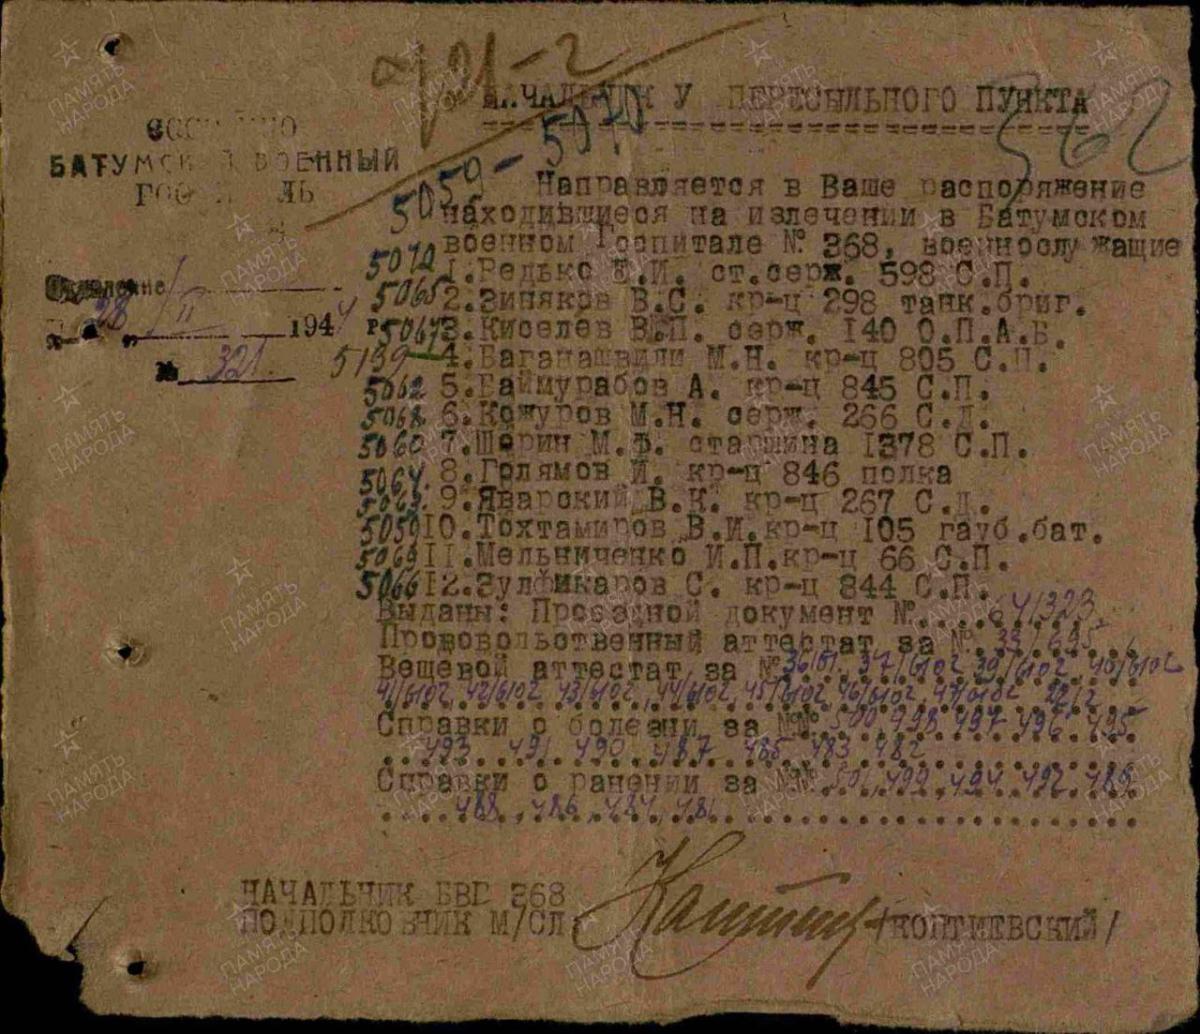 421-2
НАЧАЛЬНИКУ ПЕРЕСЫЛЬНОГО ПУНКТА
562
БАТУМСКИЙ ВОЕННЫЙ
ГОСПИТАЛЬ
5059-5070
Направляется в Ваше распоряжение
находившиеся на излечении в Батумском
военном Госпитале № 368, военнослужащие
28/II 1944 г
№ 321
5070 1.Редько Е.И. ст.серж. 598 С.П.
5065 2.Зиняков В.С. кр-ц 298 танк.бриг.
5067 3.Киселев В.П. серж. 140 О.П.А.Б.
5139 4.Баганашвили М.Н. кр-ц 805 С.П.
5062 5.Баймурабов А. кр-ц 845 С.П.
5068 6.Кожуров М.Н. серж. 266 С.Д.
5060 7.Шерин М.Ф. старшина 1378 С.П.
5064. 8.Голямов И. кр-ц 846 полка
5063. 9.Яварский В.К. кр-ц 267 С.Д.
5059 10.Тохтамиров В.И.кр-ц 105 гауб.бат.
5069 11.Мельниченко И.П.кр-ц 66 С.П.
5066 12.Зулфикаров С. кр-ц 844 С.П.
Выданы: Проездной документ №....64/323
Прововольственный аттестат за №.33/695
Вещевой аттестат за № 36/01. 37/6102 39/6102 40/6102
41/6102, 42/6102, 43/6102, 44/6102, 45/6102, 46/6102, 47/6102
Справки о болезни за №№ 500, 498, 497, 496, 495
493 491 490 487 485 483 482
Справки о ранении за №№ 501, 499, 494, 492, 489
488, 486, 484, 481
НАЧАЛЬНИК БВГ 368
ПОДПОЛКОВНИК М/СЛ /КОПТИЕВСКИЙ/
ПАМЯТЬ НАРОДА